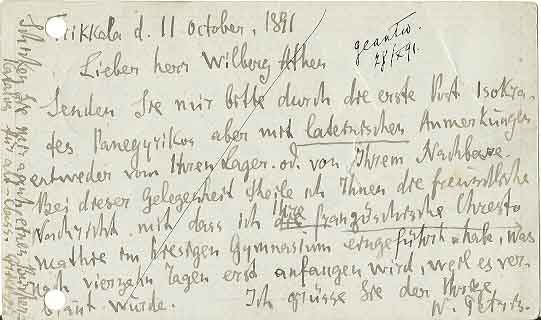 Trikkala d. 11 October, 1891
Lieber herr Wilberg Athen
geantw.
27/X 91.
Senden Sie mir bitte durch die erste Post Isokra-
tes Panegyrikos aber mit lateinischen Anmerkungen
entweder vom Ihren Lager od. von Ihrem Nachbare.
Bei dieser Gelegenheit theile ich Ihnen die freundliche
Nachricht mit dass ich Ihre französchische Chresto
mathie im hiesigen Gymnasium eingeführt habe, was
nach vierzehn Tagen erst anfangen wird, weil es ver
säumt wurde. Ich grüsse Sie der Ihrige
N. Petris.
Schicken Sie mir
Bücher-
für alt-class.